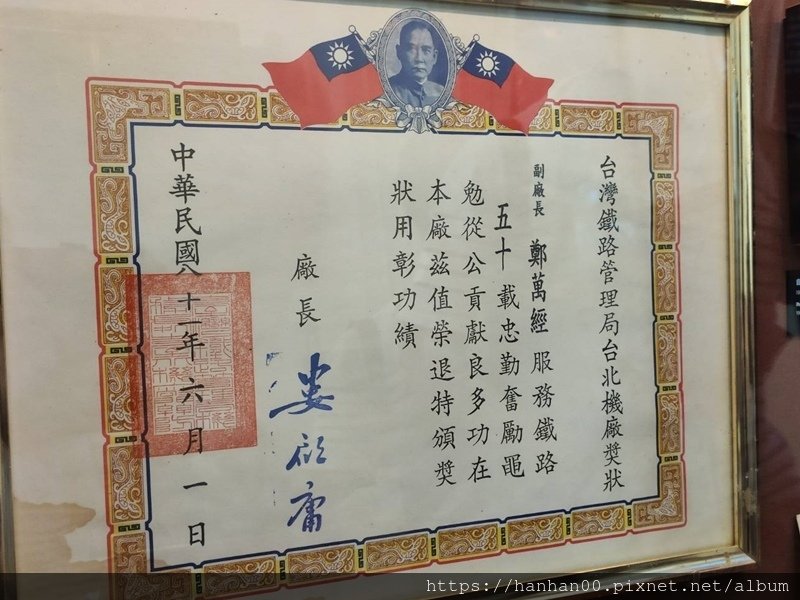 台灣鐵路管理局台北機廠獎狀
副廠長 鄭萬經 服務鐵路
五十載忠勤奮勵黽
勉從公貢獻良多功在
本廠茲值榮退特頒獎
狀用彰功績
廠長
中華民國八十一年六月一日
https://hanhan00.pixnet.net/album